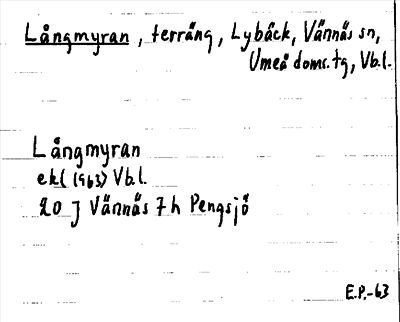 Långmyran, terräng, Lybäck, Vännäs sn,
Umeå doms.tg, Vb.l.
Långmyran
ek( (1963) Vb.l.
20 J Vännäs 7h Pengsjö
E.P.-63